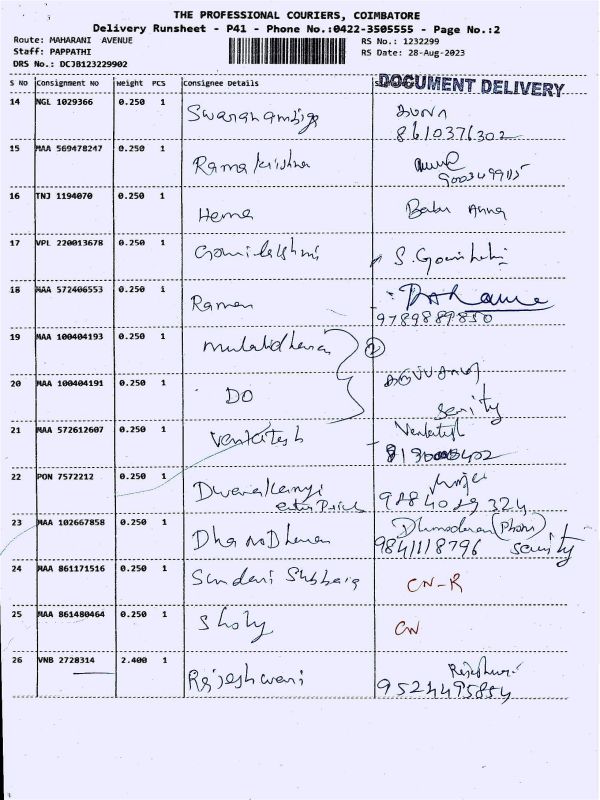 THE PROFESSIONAL COURIERS, COIMBATORE
Delivery Runsheet - P41 - Phone No.:0422-3505555 - Page No.:2
Route: MAHARANI AVENUE
RS No.: 1232299
Staff: PAPPATHI
RS Date: 28-Aug-2023
DRS No.: DCJB123229902
S NO Consignment No Weight PCS Consignee Details
DOCUMENT DELIVERY
14 NGL 1029366 0.250 1 Swaranambiga
8610376302
15 MAA 569478247 0.250 1 Ramakrishna
16 TNJ 1194070 0.250 1 Hema Babu Anna
17 VPL 220013678 0.250 1 Gowrilakshmi S. Gowri
18 MAA 572406553 0.250 1 Raman
9789889850
19 MAA 100404193 0.250 1 Muralidharan 2
20 MAA 100404191 0.250 1 DO
21 MAA 572612607 0.250 1 Venkatesh Venkatesh
22 PON 7572212 0.250 1
9884029324
23 MAA 102667858 0.250 1 (Phon)
9841118796
24 MAA 861171516 0.250 1 CN-R
25 MAA 861480464 0.250 1 Sholy CN
26 VNB 2728314 2.400 1 Rajeshwari
9524495854